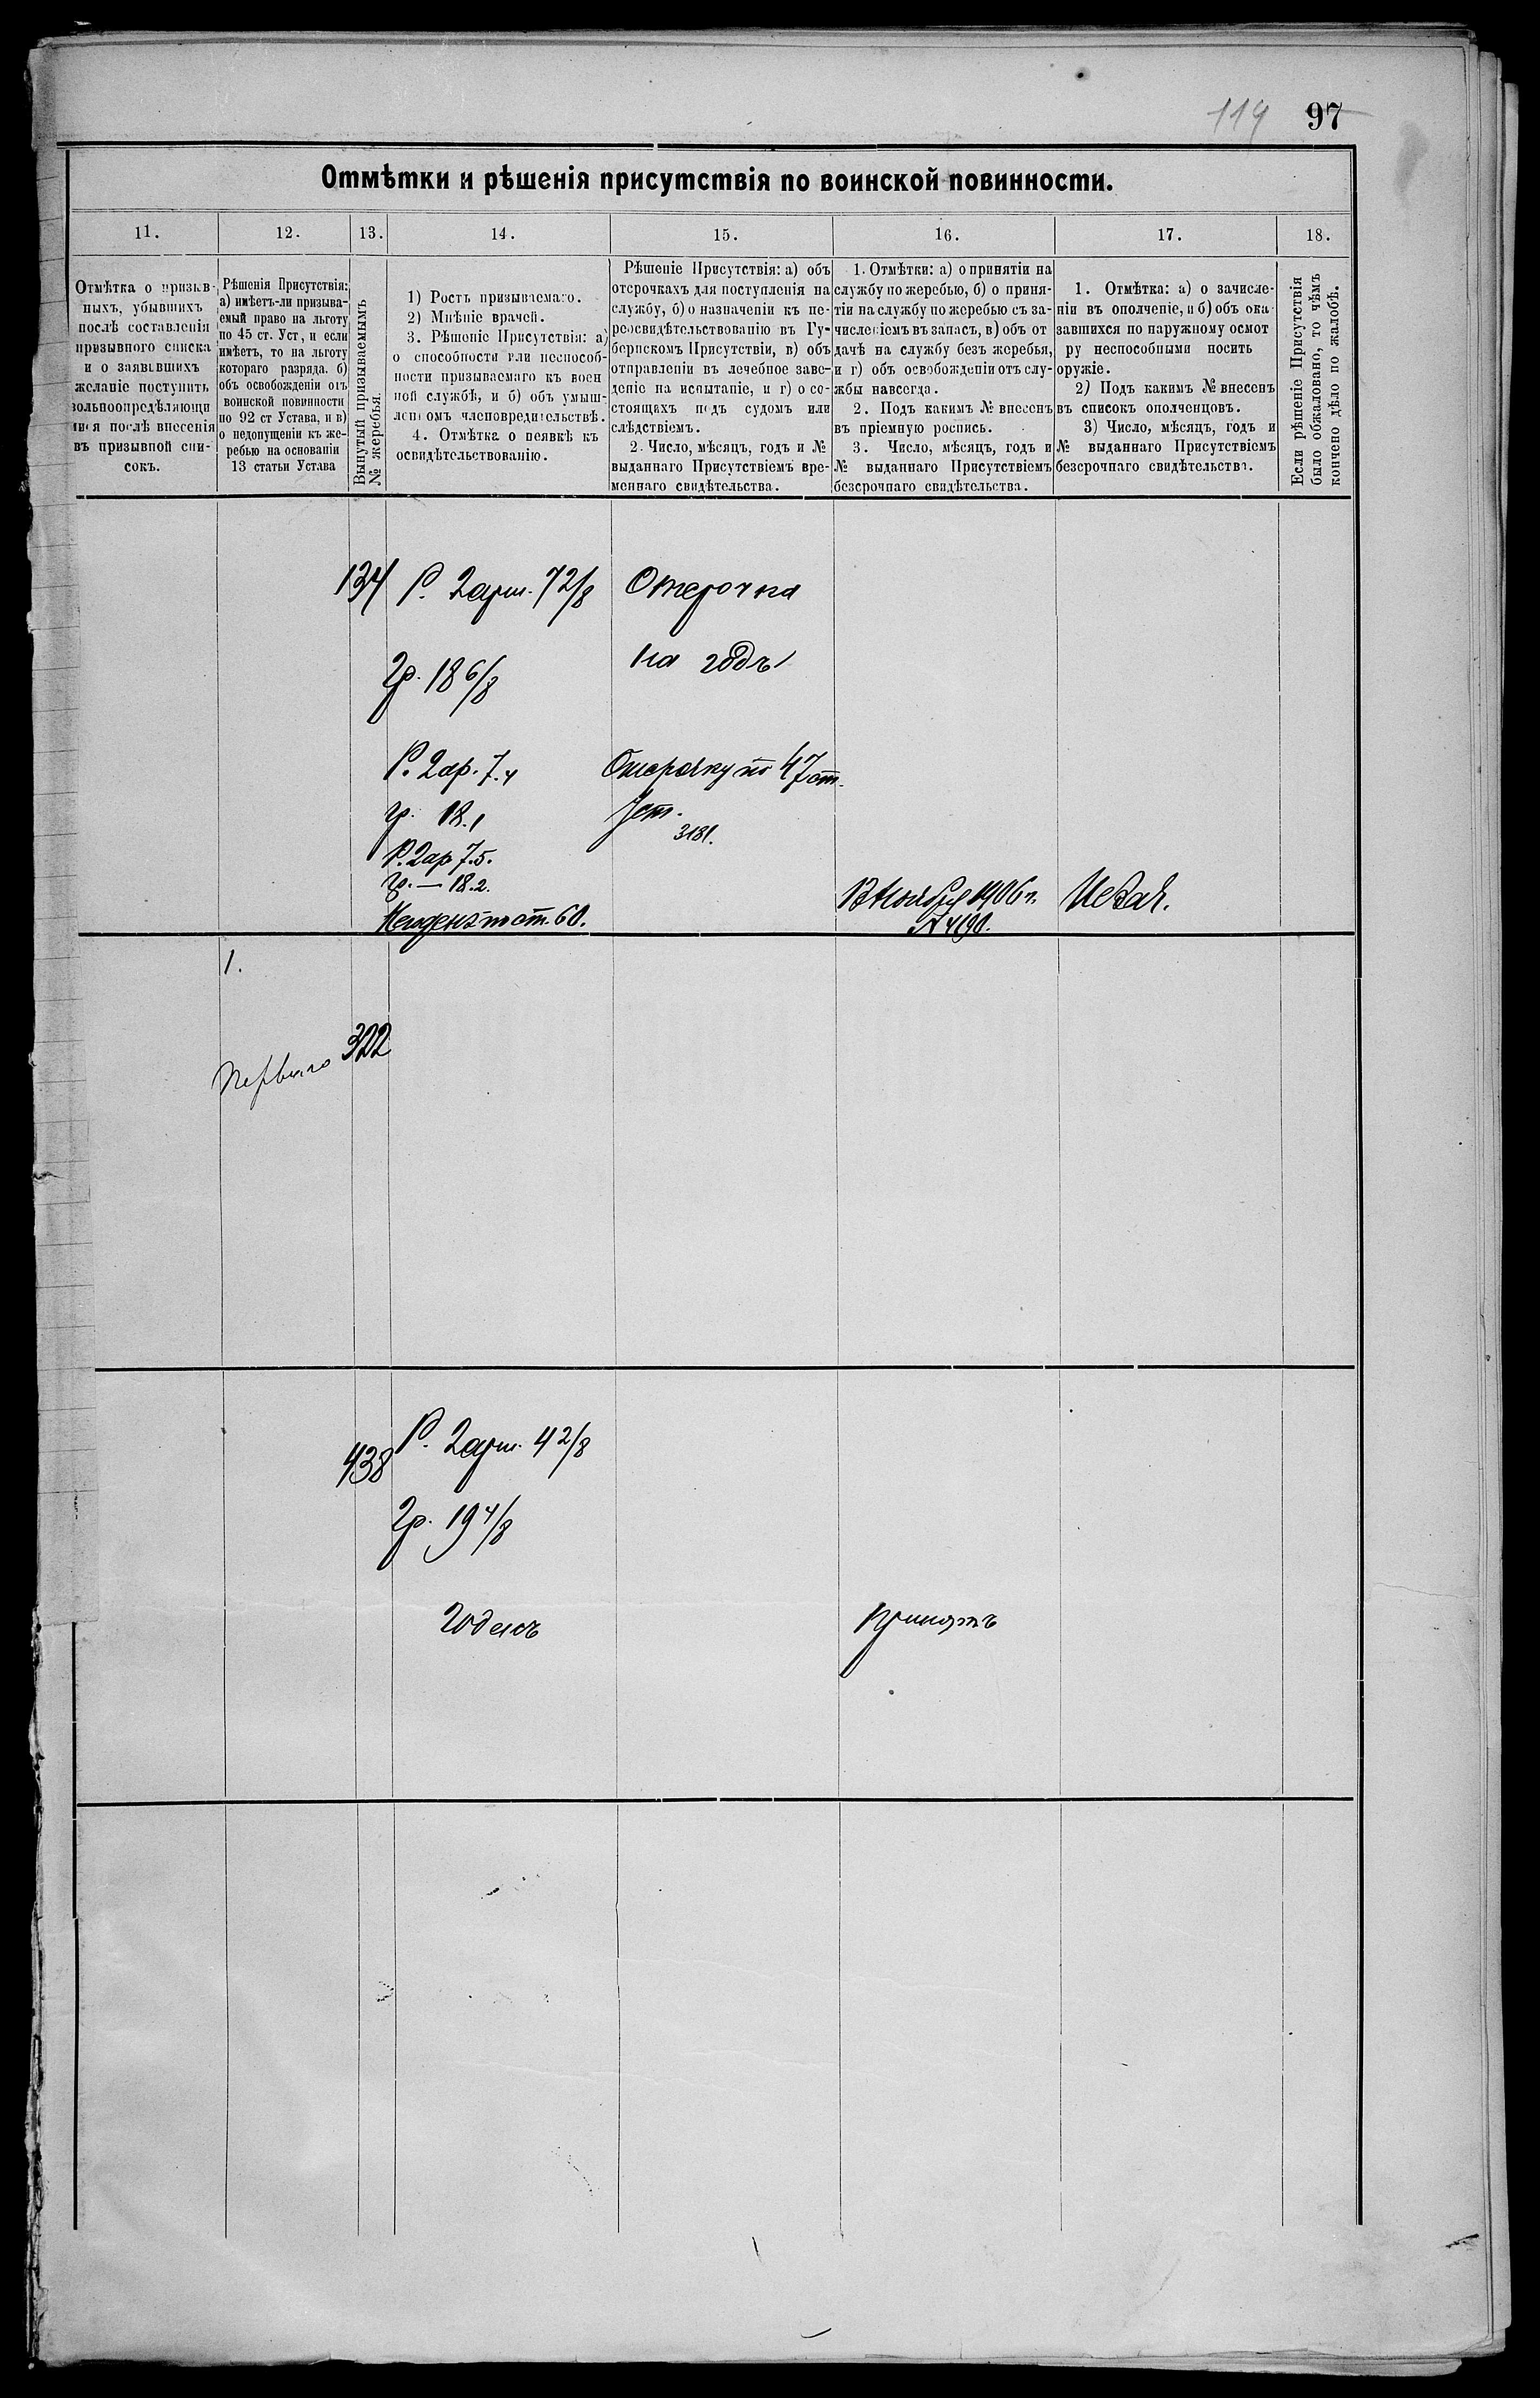 119 97
Отмѣтки и рѣшенія присутствія по воинской повинности.
11. 12. 13. 14. 15. 16. 17. 18.
Отмѣтка о призыв-
ныхъ, убывшихъ
послѣ составленія
призывного списка
и о заявившихъ
желаніе поступить
вольноопредѣляющи
мися послѣ внесенія
въ призывной спи-
сокъ.
Рѣшенія Присутствія:
а) имѣетъ-ли призыва-
емый право на льготу
по 45 ст. Уст, и если
имѣетъ, то на льготу
котораго разряда. б)
объ освобожденіи отъ
воинской повинности
по 92 ст Устава, и в)
о недопущеніи къ же-
ребью на основаніи
13 статьи Устава
Вынутый призываемымъ
№ жеребья.
1) Ростъ призываемаго.
2) Мнѣніе врачей.
3. Рѣшеніе Присутствія: а)
о способности или неспособ-
ности призываемаго къ воен
ной службѣ, и б) объ умыш-
ленномъ членовредительствѣ.
4. Отмѣтка о неявкѣ къ
освидѣтельствованію.
Рѣшеніе Присутствія: а) объ
отсрочкахъ для поступленія на
службу, б) о назначеніи къ пе-
реосвидѣтельствованію въ Гу-
бернскомъ Присутствіи, в) объ
отправленіи въ лечебное заве-
деніе на испытаніе, и г) о со-
стоящихъ подъ судомъ или
слѣдствіемъ.
2. Число, мѣсяцъ, годъ и №
выданнаго Присутствіемъ вре-
меннаго свидѣтельства.
1. Отмѣтки: а) о принятіи на
службу по жеребью, б) о приня-
тіи на службу по жеребью съ за-
численіемъ въ запасъ, в) объ от
дачѣ на службу безъ жеребья,
и г) объ освобожденіи отъ слу-
жбы навсегда.
2. Подъ какимъ № внесенъ
въ пріемную роспись.
3. Число, мѣсяцъ, годъ и
№ выданнаго Присутствіемъ
безсрочнаго свидѣтельства.
1. Отмѣтка: а) о зачисле-
ніи въ ополченіе, и б) объ ока
завшихся по наружному осмот
ру неспособными носить
оружіе.
2) Подъ какимъ № внесенъ
въ списокъ ополченцовъ.
3) Число, мѣсяцъ, годъ и
№ выданнаго Присутствіемъ
безсрочнаго свидѣтельства.
Если рѣшеніе Присутствія
было обжаловано, то чѣмъ
кончено дѣло по жалобѣ.
134 Р. 2 арш. 7 2/8 Отсрочка
гр. 18 6/8 на годъ
Р. 2 ар. 7.4 Отсрочку по 47 ст.
гр. 18.1 Уст.
3181.
Р. 2 ар 7.5.
гр. — 18.2. 13 Ноября 1906 г.
по ст. 60. № 4190.
1.
Перваго 322
438 Р. 2 арш. 4 2/8
гр. 19 4/8
Годенъ Принятъ